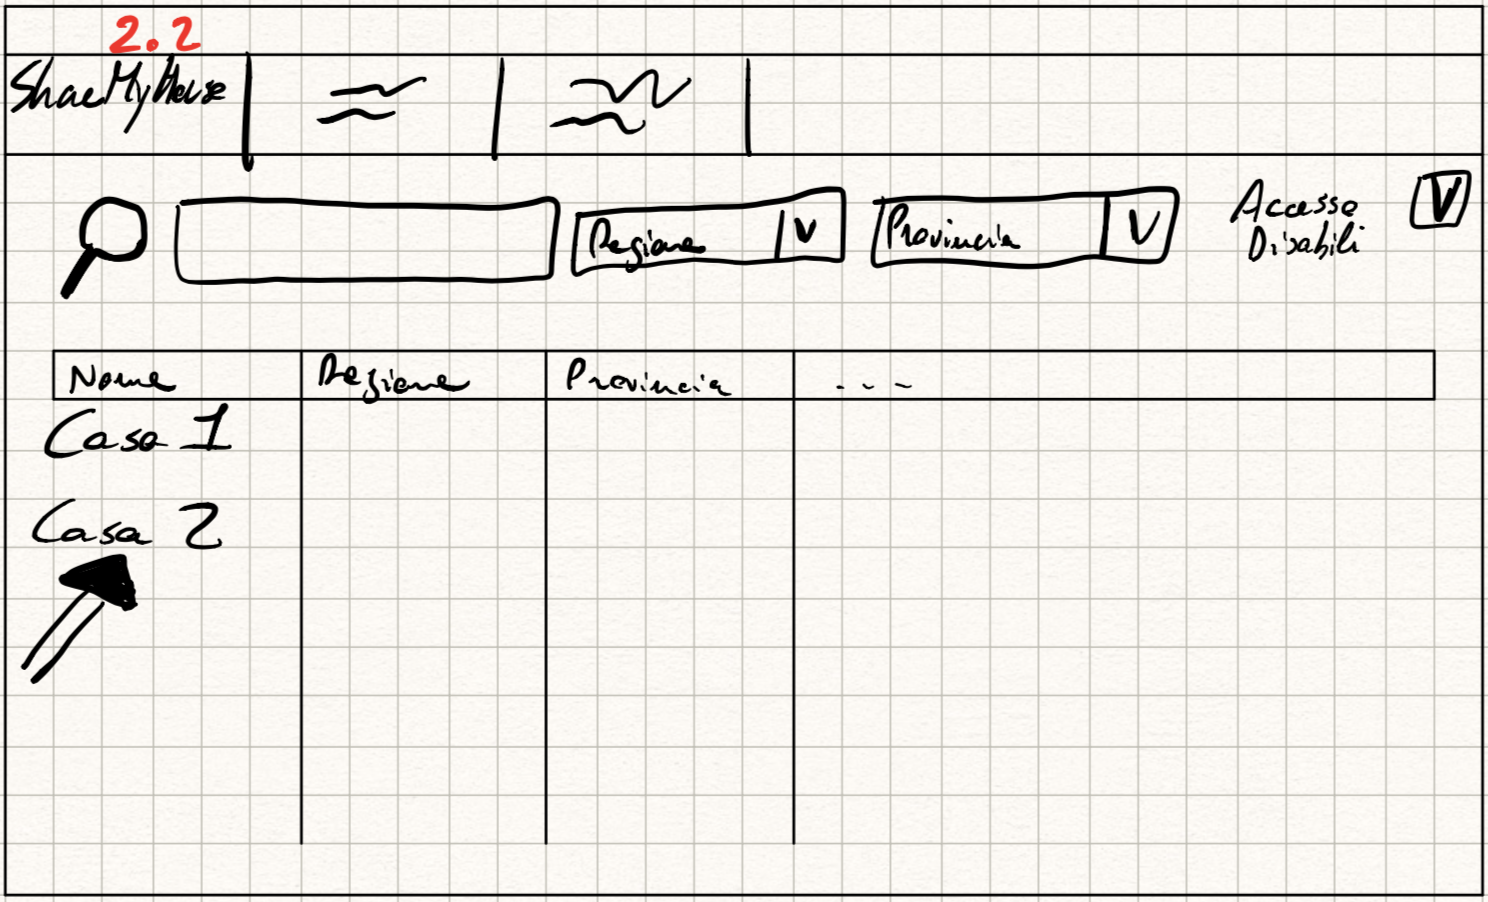 2.2
ShaeMyHouse
Regione V Provincia V Accesso V
Disabili
Nome Regione Provincia ---
Casa 1
Casa 2